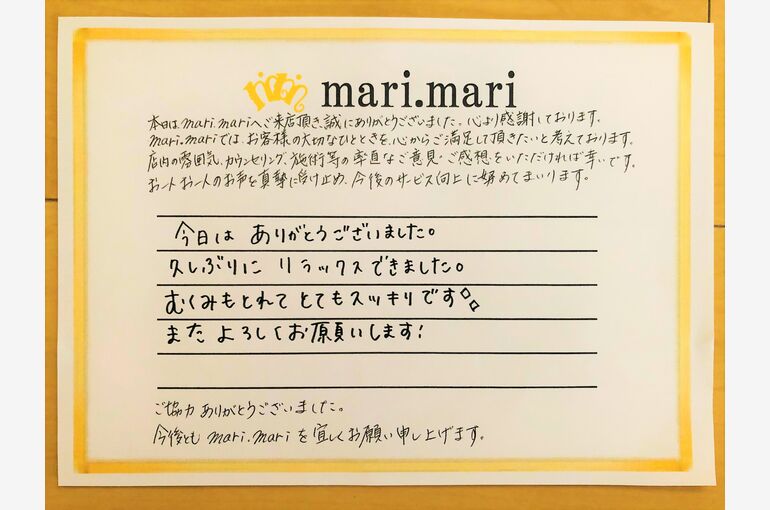 mari.mari
本日は、mari.mariへご来店頂き、誠にありがとうございました。心より感謝しております。
mari.mariでは、お客様の大切なひとときを、心からご満足して頂きたいと考えております。
店内の雰囲気、カウンセリング、施術等の率直なご意見・ご感想をいただければ幸いです。
お一人お一人のお声を真摯に受け止め、今後のサービス向上に努めてまいります。
今日は ありがとうございました。
久しぶりに リラックスできました。
むくみもとれて とてもスッキリです
また よろしくお願いします!
ご協力ありがとうございました。
今後とも mari.mari を宜しくお願い申し上げます。